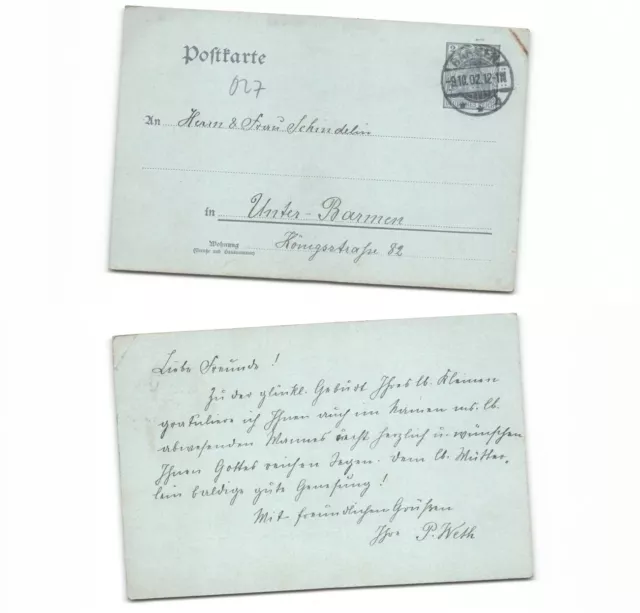 Postkarte
027
2
BARMEN
-9.10.02.12-1N
* * 1
An Herrn & Frau Schindelin
in Unter-Barmen
Wohnung
(Straße und Hausnummer)
Königsstraße 82
Liebe Freunde!
Zu der glückl. Geburt Ihres lb. Kleinen
gratuliere ich Ihnen auch im Namen ms. lb.
abwesenden Mannes recht herzlich u. wünschen
Ihnen Gottes reichen Segen. Dem lb. Mütter-
lein baldige gute Genesung!
Mit freundlichen Grüßen
Ihre P. Weth